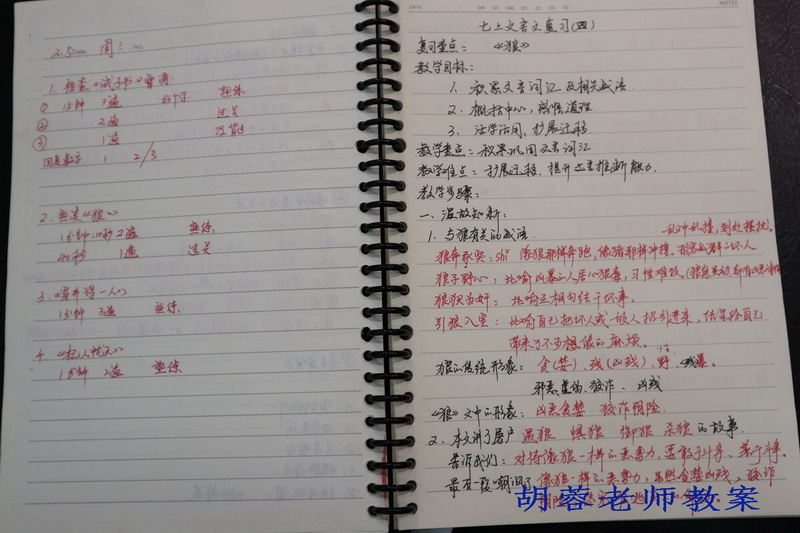 2.5 周三
1. 检查《诫子书》背诵
① 1分钟 3遍 熟练
② 2遍 过关
③ 1遍
2. 熟读《狼》
1分钟 2遍 熟练
40秒 1遍 过关
3.《穿井得一人》
1分钟 3遍 熟练
4.《杞人忧天》
1分钟 2遍 熟练
DATE
NOTES
七上文言文复习(四)
复习重点：《狼》
教学目标：
1. 积累文言词汇及相关成语
2. 概括中心，感悟道理
3. 活学活用，扩展迁移
教学重点：积累巩固文言词汇
教学难点：扩展迁移，提升文言推断能力
教学步骤：
一、温故知新：
1. 与狼有关的成语
乱冲乱撞，到处搅扰)。
狼奔豕突：shǐ 像狼那样奔跑，像猪那样冲撞，形容成群的坏人
狼子野心：比喻凶暴的人居心狠毒，习性难改。
狼狈为奸：比喻互相勾结干坏事。
引狼入室：比喻自己把坏人或敌人招引进来，结果给自己
带来了不可想像的麻烦。
狼的传统形象：贪(婪)、残(凶残)、野、暴。
邪恶虚伪、狡诈、凶残
《狼》文中的形象：凶恶贪婪 狡诈阴险
2. 本文讲了屠户 遇狼 惧狼 御狼 杀狼的故事
告诉我们：对待像狼一样的恶势力，要敢于斗争、善于斗争。
最后一段嘲讽了像狼一样的恶势力，虽然贪婪凶残，狡诈
胡蓉老师教案